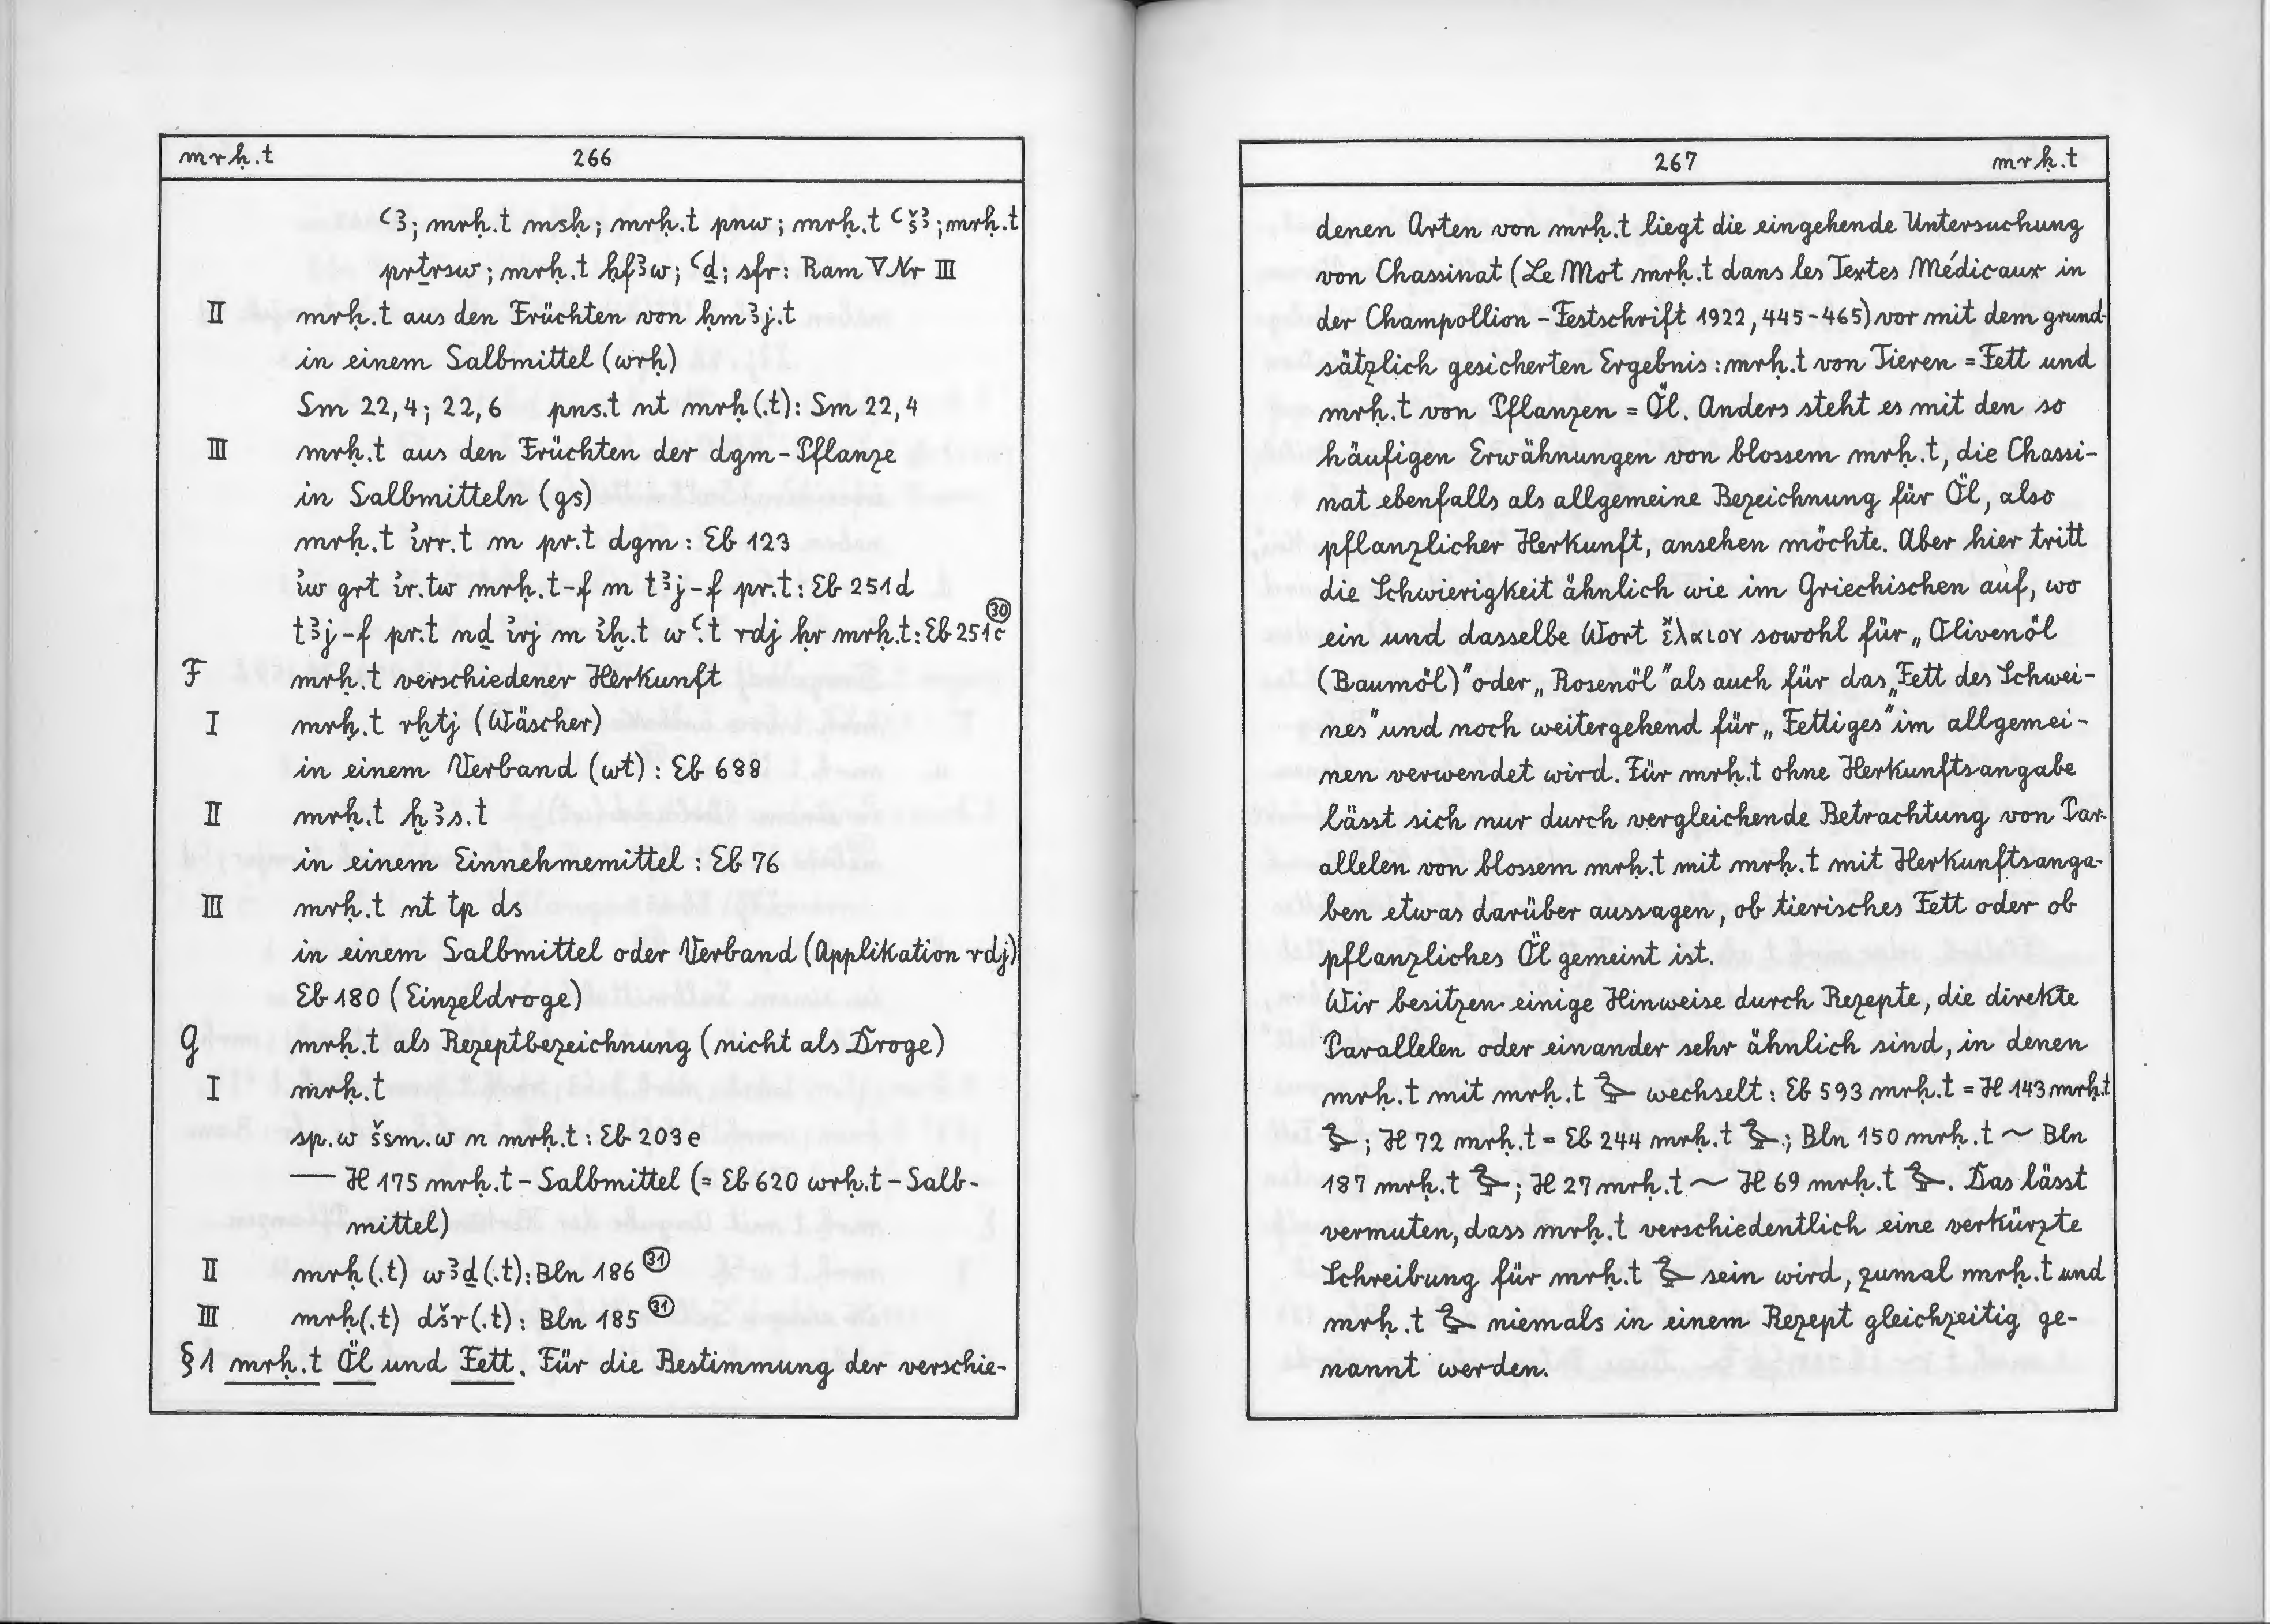 mrḥ.t 266
ꜥꜣ; mrḥ.t msḥ; mrḥ.t pnw; mrḥ.t ꜥšꜣ; mrḥ.t
prṯrsw; mrḥ.t ḥfꜣw; ꜥḏ; sfr: Ram ∇ Nr III
II mrḥ.t aus den Früchten von ḥmꜣj.t
in einem Salbmittel (wrḥ)
Sm 22,4; 22,6 pns.t nt mrḥ(.t): Sm 22,4
III mrḥ.t aus den Früchten der dgm-Pflanze
in Salbmitteln (gs)
mrḥ.t ꞽrr.t m pr.t dgm: Eb 123
ꞽw grt ꞽr.tw mrḥ.t-f m tꜣj-f pr.t: Eb 251d
tꜣj-f pr.t nḏ ꞽrj m ꞽḫ.t wꜥ.t rdj ḥr mrḥ.t: Eb 251c ㉚
F mrḥ.t verschiedener Herkunft
I mrḥ.t rḫtj (Wäscher)
in einem Verband (wt): Eb 688
II mrḥ.t ḫꜣs.t
in einem Einnehmemittel: Eb 76
III mrḥ.t nt tp ds
in einem Salbmittel oder Verband (Applikation rdj)
Eb 180 (Einzeldroge)
G mrḥ.t als Rezeptbezeichnung (nicht als Droge)
I mrḥ.t
sp.w šsm.w n mrḥ.t: Eb 203e
— H 175 mrḥ.t-Salbmittel (= Eb 620 wrḥ.t-Salb-
mittel)
II mrḥ(.t) wꜣḏ(.t): Bln 186 ㉛
III mrḥ(.t) dšr(.t): Bln 185 ㉛
§1 mrḥ.t Öl und Fett. Für die Bestimmung der verschie-
267 mrḥ.t
denen Arten von mrḥ.t liegt die eingehende Untersuchung
von Chassinat (Le Mot mrḥ.t dans les Textes Médicaux in
der Champollion-Festschrift 1922, 445-465) vor mit dem grund-
sätzlich gesicherten Ergebnis: mrḥ.t von Tieren = Fett und
mrḥ.t von Pflanzen = Öl. Anders steht es mit den so
häufigen Erwähnungen von blossem mrḥ.t, die Chassi-
nat ebenfalls als allgemeine Bezeichnung für Öl, also
pflanzlicher Herkunft, ansehen möchte. Aber hier tritt
die Schwierigkeit ähnlich wie im Griechischen auf, wo
ein und dasselbe Wort ἔλαιον sowohl für „Olivenöl
(Baumöl)" oder „Rosenöl" als auch für das „Fett des Schwei-
nes" und noch weitergehend für „Fettiges" im allgemei-
nen verwendet wird. Für mrḥ.t ohne Herkunftsangabe
lässt sich nur durch vergleichende Betrachtung von Par-
allelen von blossem mrḥ.t mit mrḥ.t mit Herkunftsanga-
ben etwas darüber aussagen, ob tierisches Fett oder ob
pflanzliches Öl gemeint ist.
Wir besitzen einige Hinweise durch Rezepte, die direkte
Parallelen oder einander sehr ähnlich sind, in denen
mrḥ.t mit mrḥ.t wechselt: Eb 593 mrḥ.t = H 143 mrḥ.t
; H 72 mrḥ.t = Eb 244 mrḥ.t ; Bln 150 mrḥ.t ~ Bln
187 mrḥ.t ; H 27 mrḥ.t ~ H 69 mrḥ.t . Das lässt
vermuten, dass mrḥ.t verschiedentlich eine verkürzte
Schreibung für mrḥ.t sein wird, zumal mrḥ.t und
mrḥ.t niemals in einem Rezept gleichzeitig ge-
nannt werden.